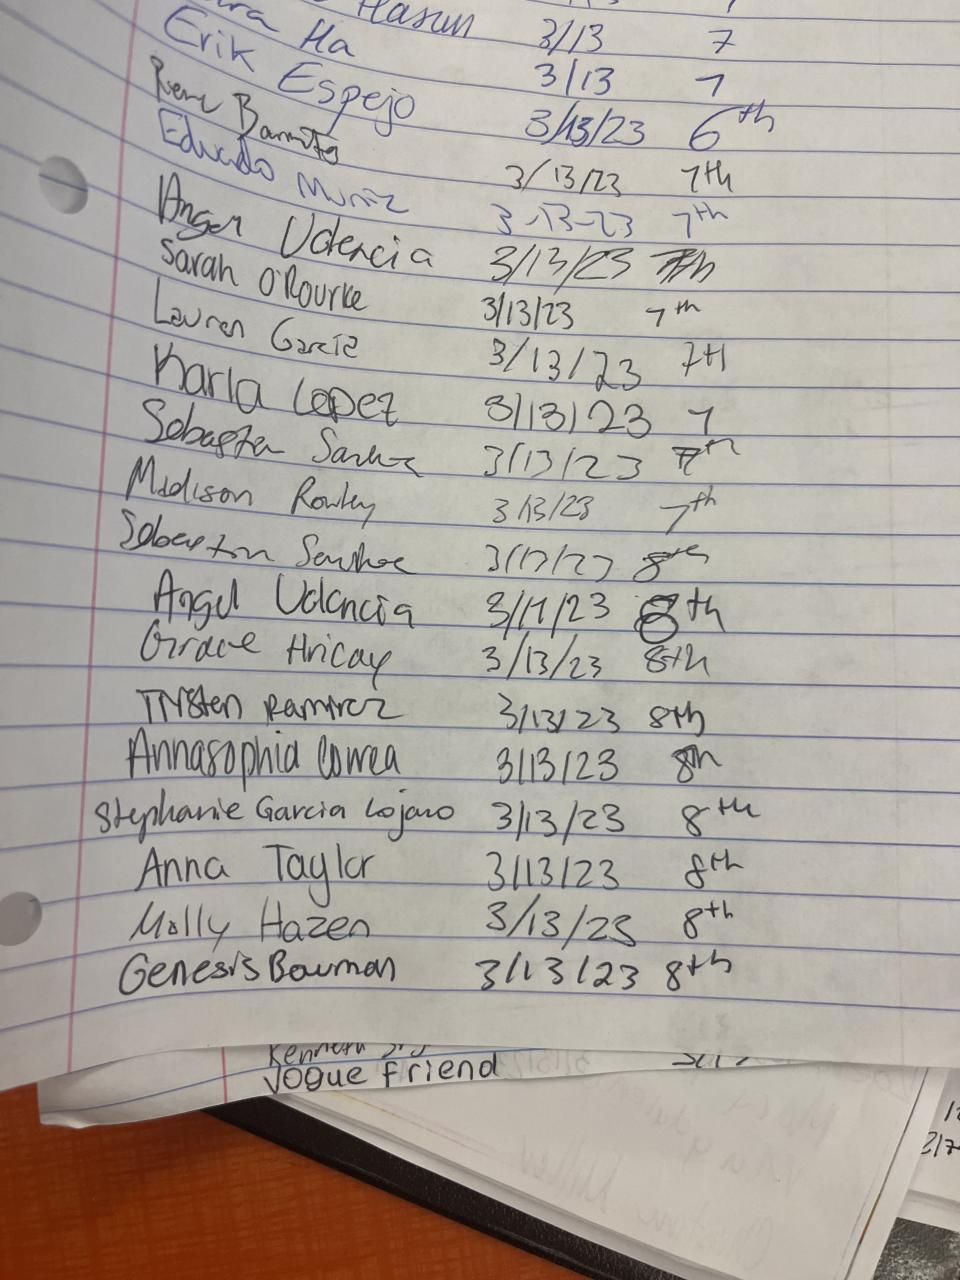 Hasun 3/13 7
Ha 3/13 7
Erik Espejo 3/13/23 6th
Rene 3/13/23 7th
Eduardo Muniz 3-13-23 7th
Angel Valencia 3/13/23 7th
Sarah O'Rourke 3/13/23 7th
Lauren Garcia 3/13/23 7th
Karla Lopez 3/13/23 7
Sebastian 3/13/23 7th
Madison Rowley 3/13/23 7th
Sebastian 3/13/23 8th
Angel Valencia 3/14/23 8th
Grace Hricay 3/13/23 8th
Tristen Ramirez 3/13/23 8th
Annasophia Correa 3/13/23 8th
Stephanie Garcia Lojano 3/13/23 8th
Anna Taylor 3/13/23 8th
Molly Hazen 3/13/23 8th
Genesis Bowman 3/13/23 8th
Kenneth
Vogue friend